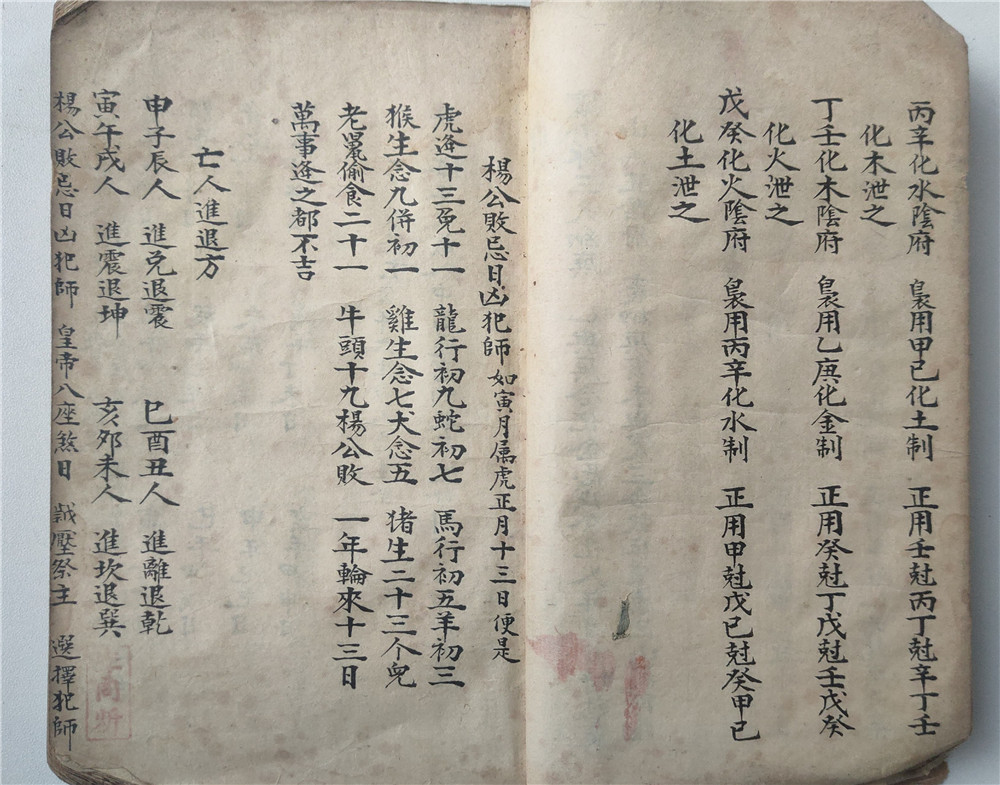 丙辛化水陰府 用甲己化土制 正用壬尅丙丁尅辛丁壬
化木泄之
丁壬化木陰府 用乙庚化金制 正用癸尅丁戊尅壬戊癸
化火泄之
戊癸化火陰府 用丙辛化水制 正用甲尅戊己尅癸甲己
化土泄之
楊公敗忌日凶犯師如寅月属虎正月十三日便是
虎逢十三兎十一 龍行初九蛇初七 馬行初五羊初三
猴生念九併初一 雞生念七犬念五 猪生二十三个兒
老鼠偷食二十一 牛頭十九楊公敗 一年輪來十三日
萬事逢之都不吉
亡人進退方
申子辰人 進兑退震 巳酉丑人 進離退乾
寅午戌人 進震退坤 亥夘未人 進坎退巽
楊公敗忌日凶犯師 皇帝八座煞日 壓祭主 選擇犯師